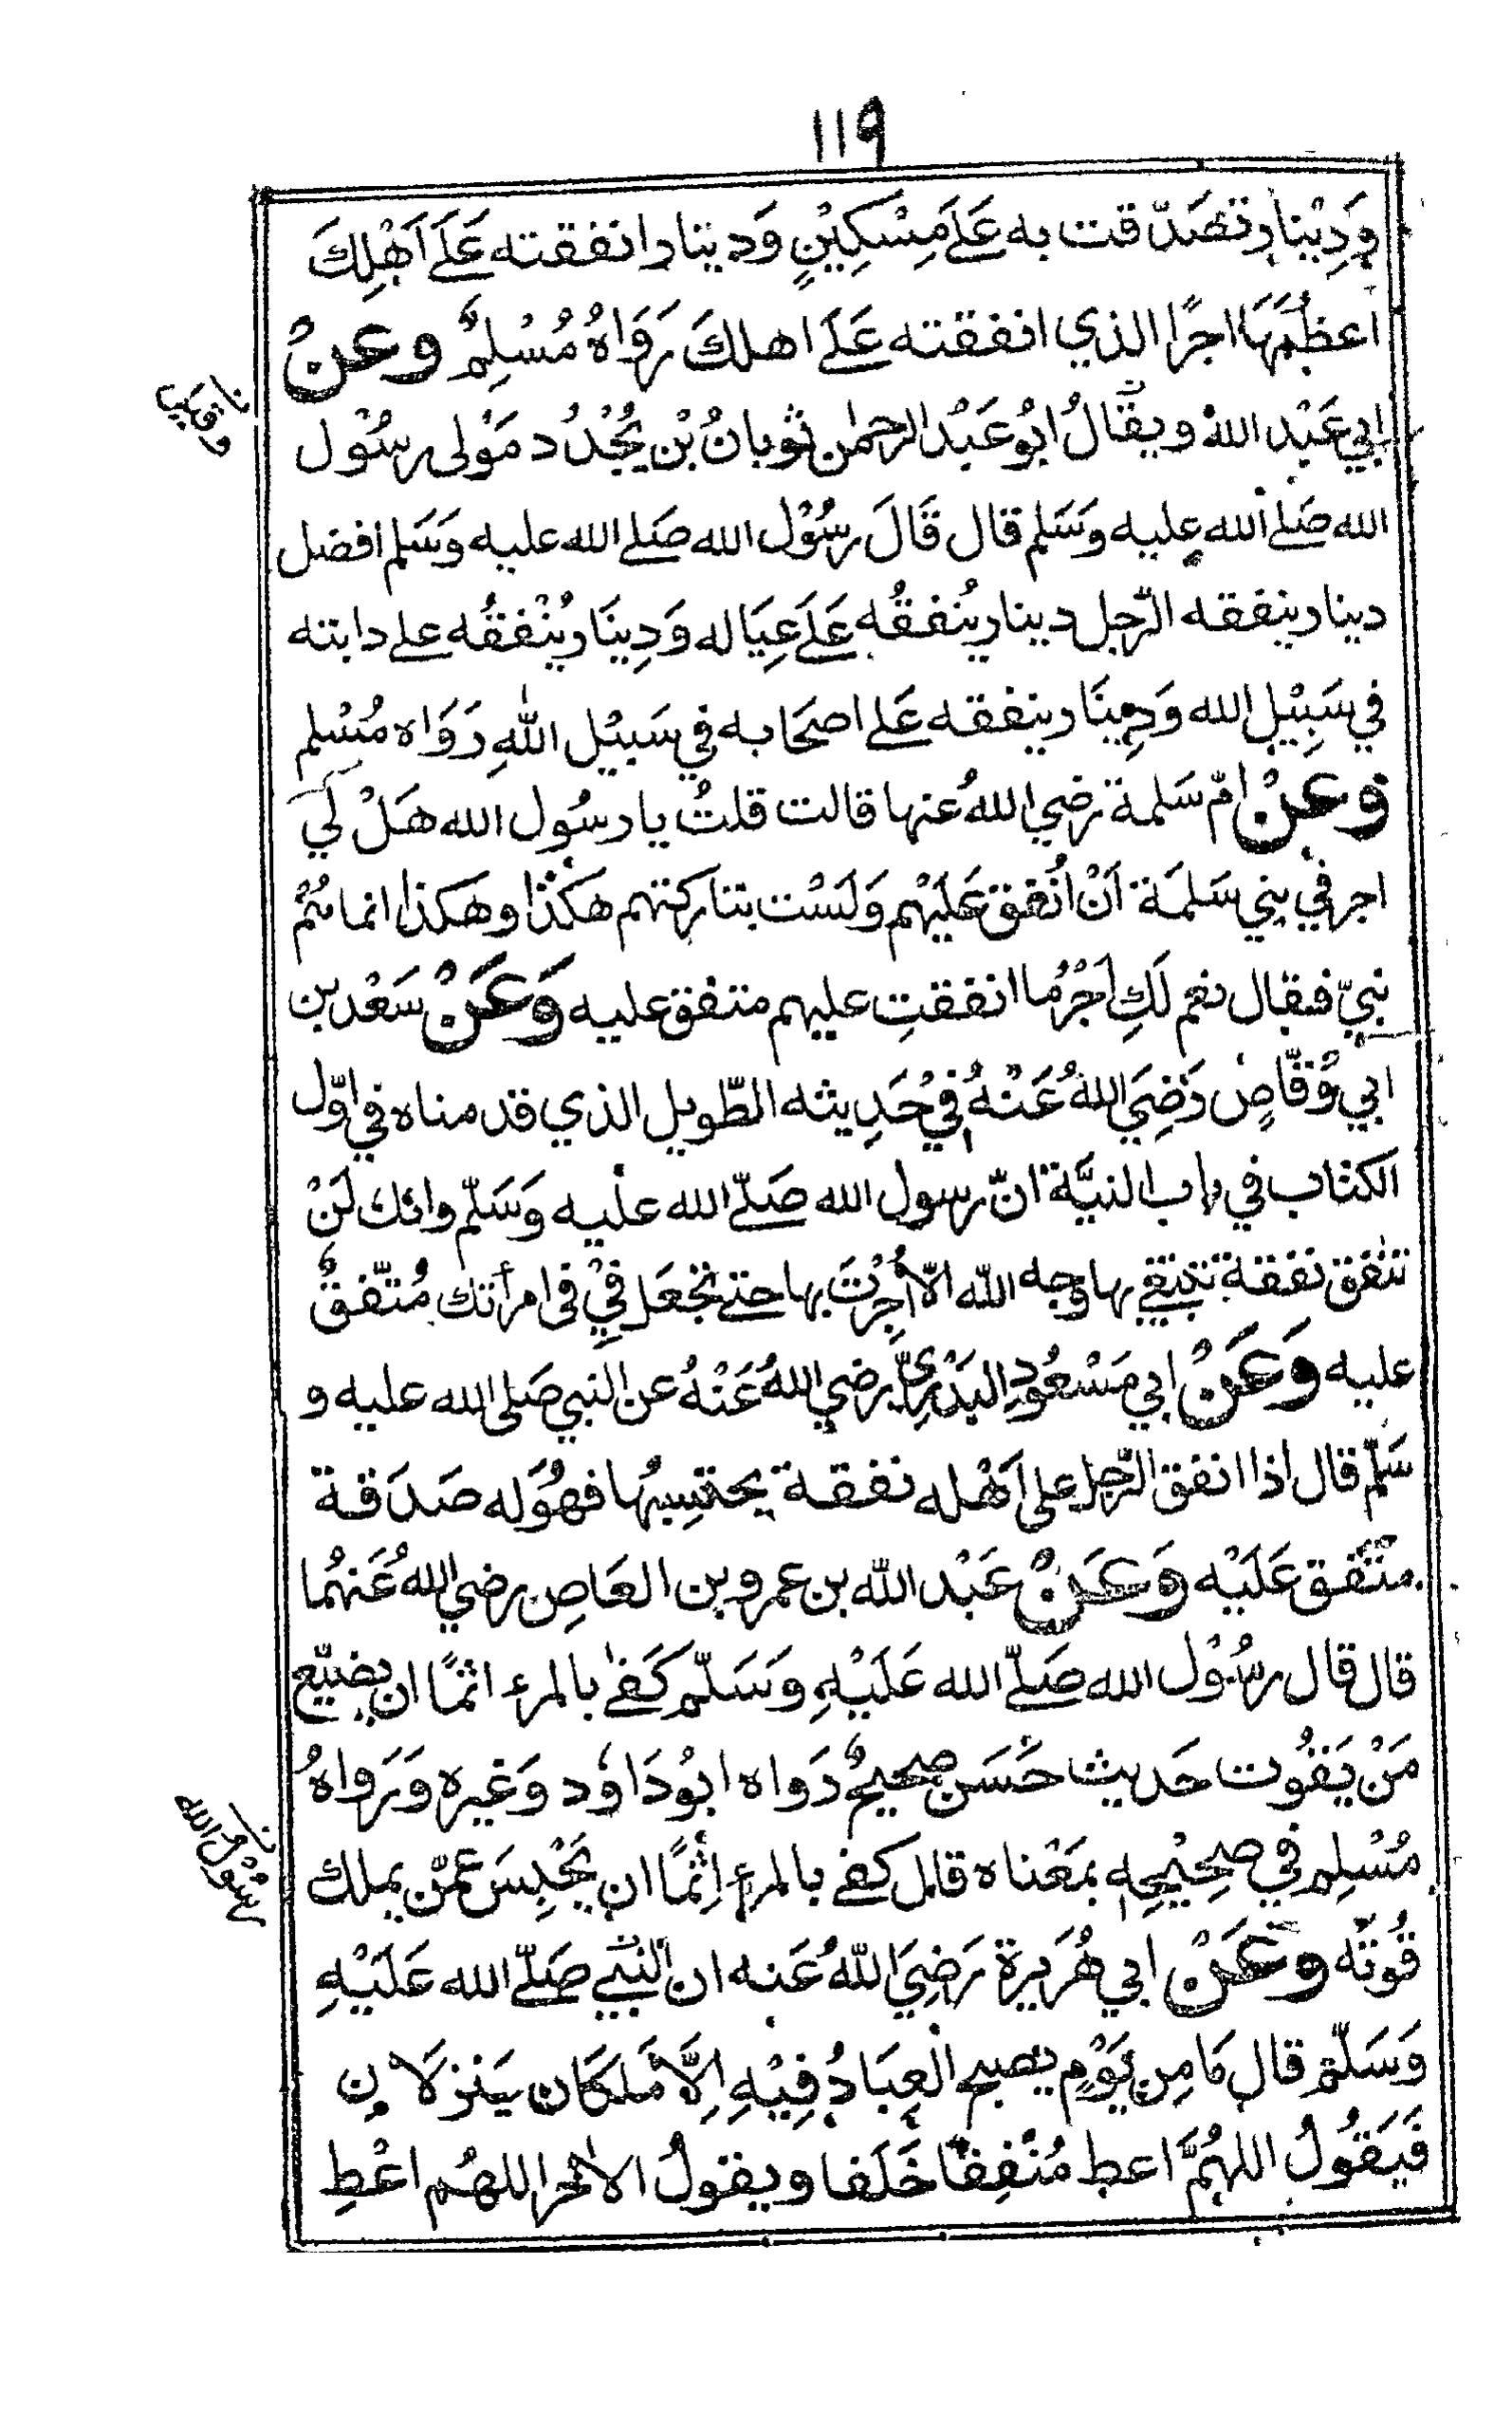 ١١٩
وَدِيْنار تصَدّقت به عَلَے مِسْكِيْنٍ وَدينار انفقته عَلَے اَهْلِكَ
اعظمُهَا اجرًا الذي انفقته عَلَے اهلكَ رَوَاهُ مُسْلِمٌ وعنْ
ابي عَبْد الله ويقَالُ ابُو عَبْدُ الرحمٰن ثوبانُ بْن بُجْدُد مَوْلى رسُوْل
الله صَلے الله عليه وَسَلم قال قَالَ رسُوْل الله صَلے الله عليه وَسَلم افضل
دينار ينفقه الرّجل دينار يُنفقُه عَلَے عِيَاله وَدِينَار يُنْفقُه علے دابته
في سَبِيْلِ الله وَدِينَار ينفقه عَلے اصحَابه في سَبيْل اللّٰهِ رَوَاه مُسْلم
وعنْ امّ سَلمة رضي اللهُ عنها قالت قلتُ يا رسُول الله هَلْ لَي
اجر في بني سَلمَة اَنْ اُنفق عَلَيْهم وَلَسْت بتاركتهم هكذا وهكذا انما هُمْ
بَنيّ فقال نعم لَكِ اَجْرُ ما انفقتِ عليهم متفق عليه وَعَنْ سَعْد بن
ابي وَقّاصٍ رَضِيَ اللهُ عَنْهُ في حَدِيثه الطّويل الذي قدمناه في اوّل
الكتاب في باب النيَّة انّ رسول الله صَلّے الله عليه وَسَلّم وانك لَنْ
تنفق نفقة تبتغے بها وجه اللّه الّا اُجِرْتَ بها حتے تجْعَل فِيْ في امرأتك مُتّفقٌ
عليه وَعَنْ ابي مَسْعُودِ البَدْرِيّ رضي اللهُ عَنْهُ عن النبي صَلى الله عليه و
سَلّم قال اذا انفق الرّجل على اَهْله نفقة يحتسِبُها فهُوَ له صَدَقة
متّفق عَلَيْه وَعَنْ عَبْد اللّه بن عمرو بن العَاصِ رضي اللهُ عَنهُما
قال قال رسُوْل الله صَلّے الله عَلَيْهِ وَسَلّم كفےٰ بالمرء اثمًا ان يضيّع
مَنْ يَقُوت حَديث حَسَن صحيحٌ رَواه ابُوْدَاوٗد وَغيره وَرَواهُ
مُسْلِم في صحِيْحِهِ بمَعْناه قال كفے بالمرءِ اِثْمًا ان يَحْبِسَ عمّن يملك
قُوتَه وعَنْ ابي هُرَيرة رَضِيَ اللّهُ عَنه ان النّبے صَلّے الله عَلَيْهِ
وَسَلّم قال مَا مِن يَوْمٍ يصبح الْعِبَادُ فِيْهِ اِلَّا مَلَكَان يَنزلَان
فَيَقُولُ اللهُمَّ اعط مُنْفِقًا خَلَفا ويقولُ الاٰخر اللهُم اعْطِ